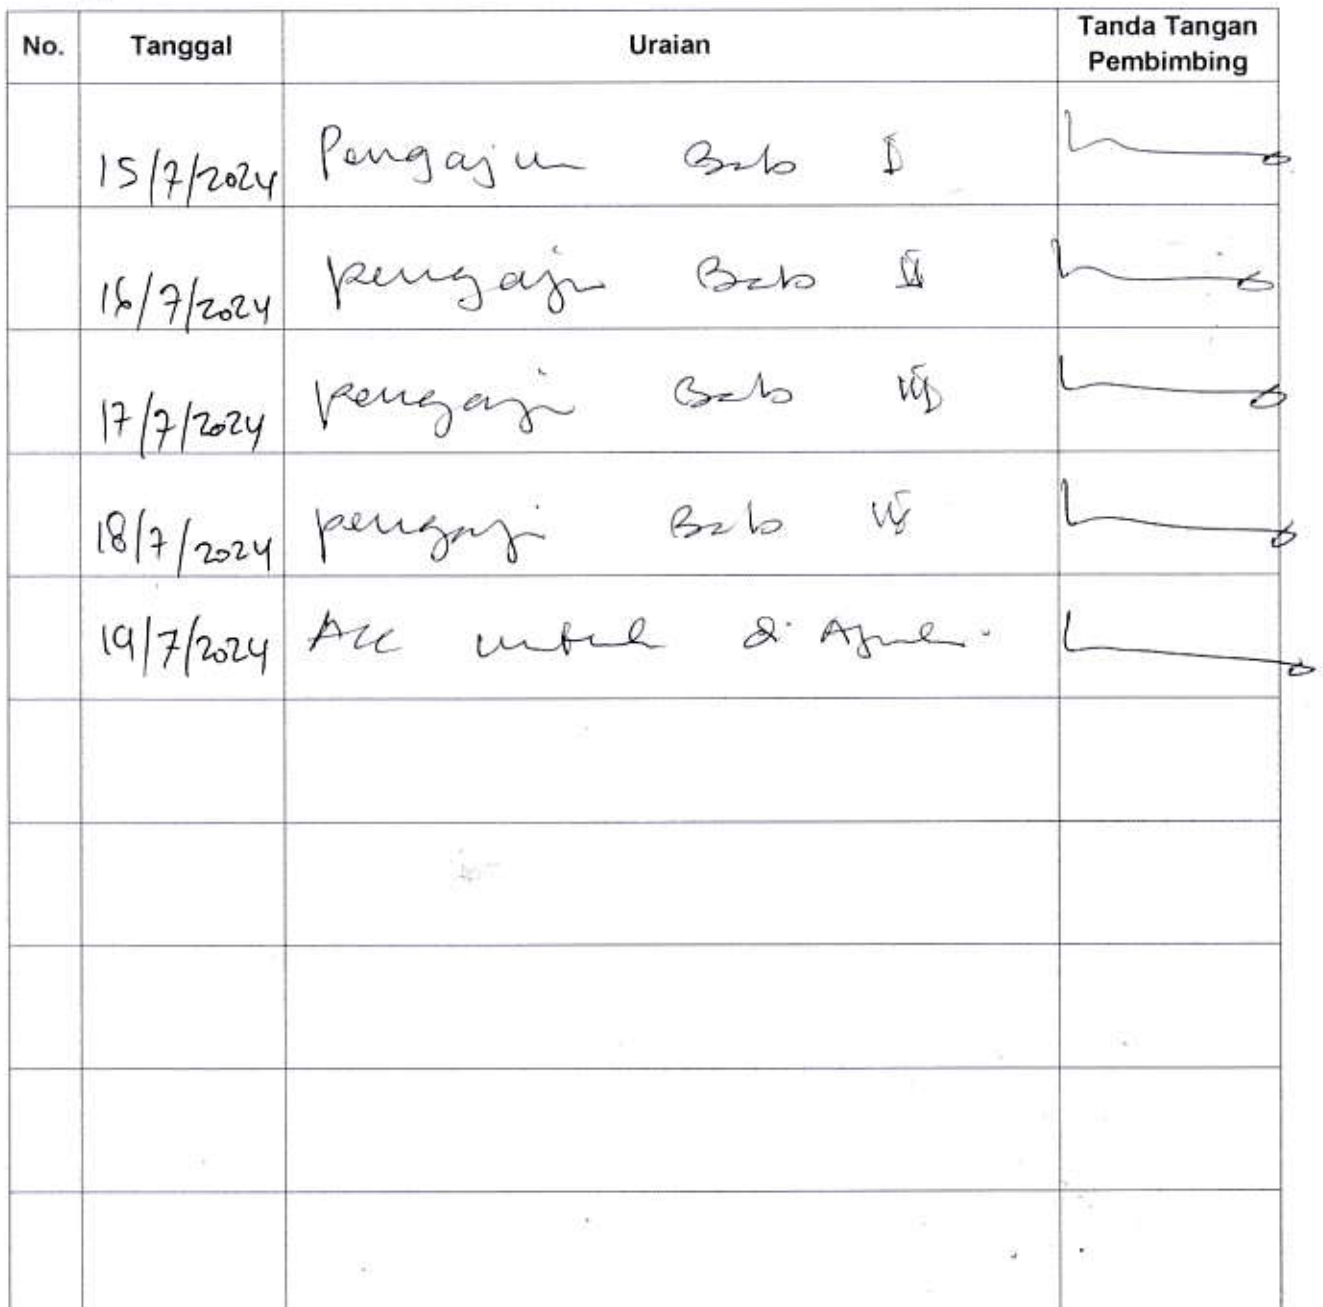 No. Tanggal Uraian Tanda Tangan
Pembimbing
15/7/2024 Pengajun Bab I
16/7/2024 pengajn Bab II
17/7/2024 pengaji Bab III
18/7/2024 pengaji Bab
19/7/2024 Acc untuk di Ajuk.